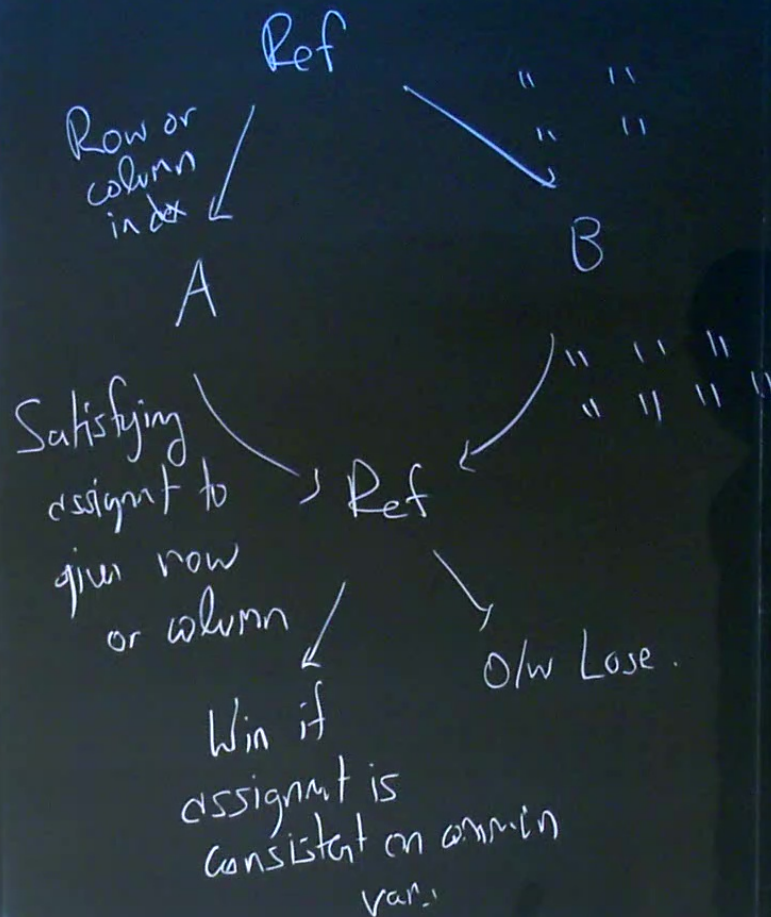 Ref
Row or
column
index
" "
" "
A
B
Satisfying
assignmt to
given row
or column
" " "
" " " "
Ref
Win if
assignmt is
consistent on common
var.
O/w Lose.